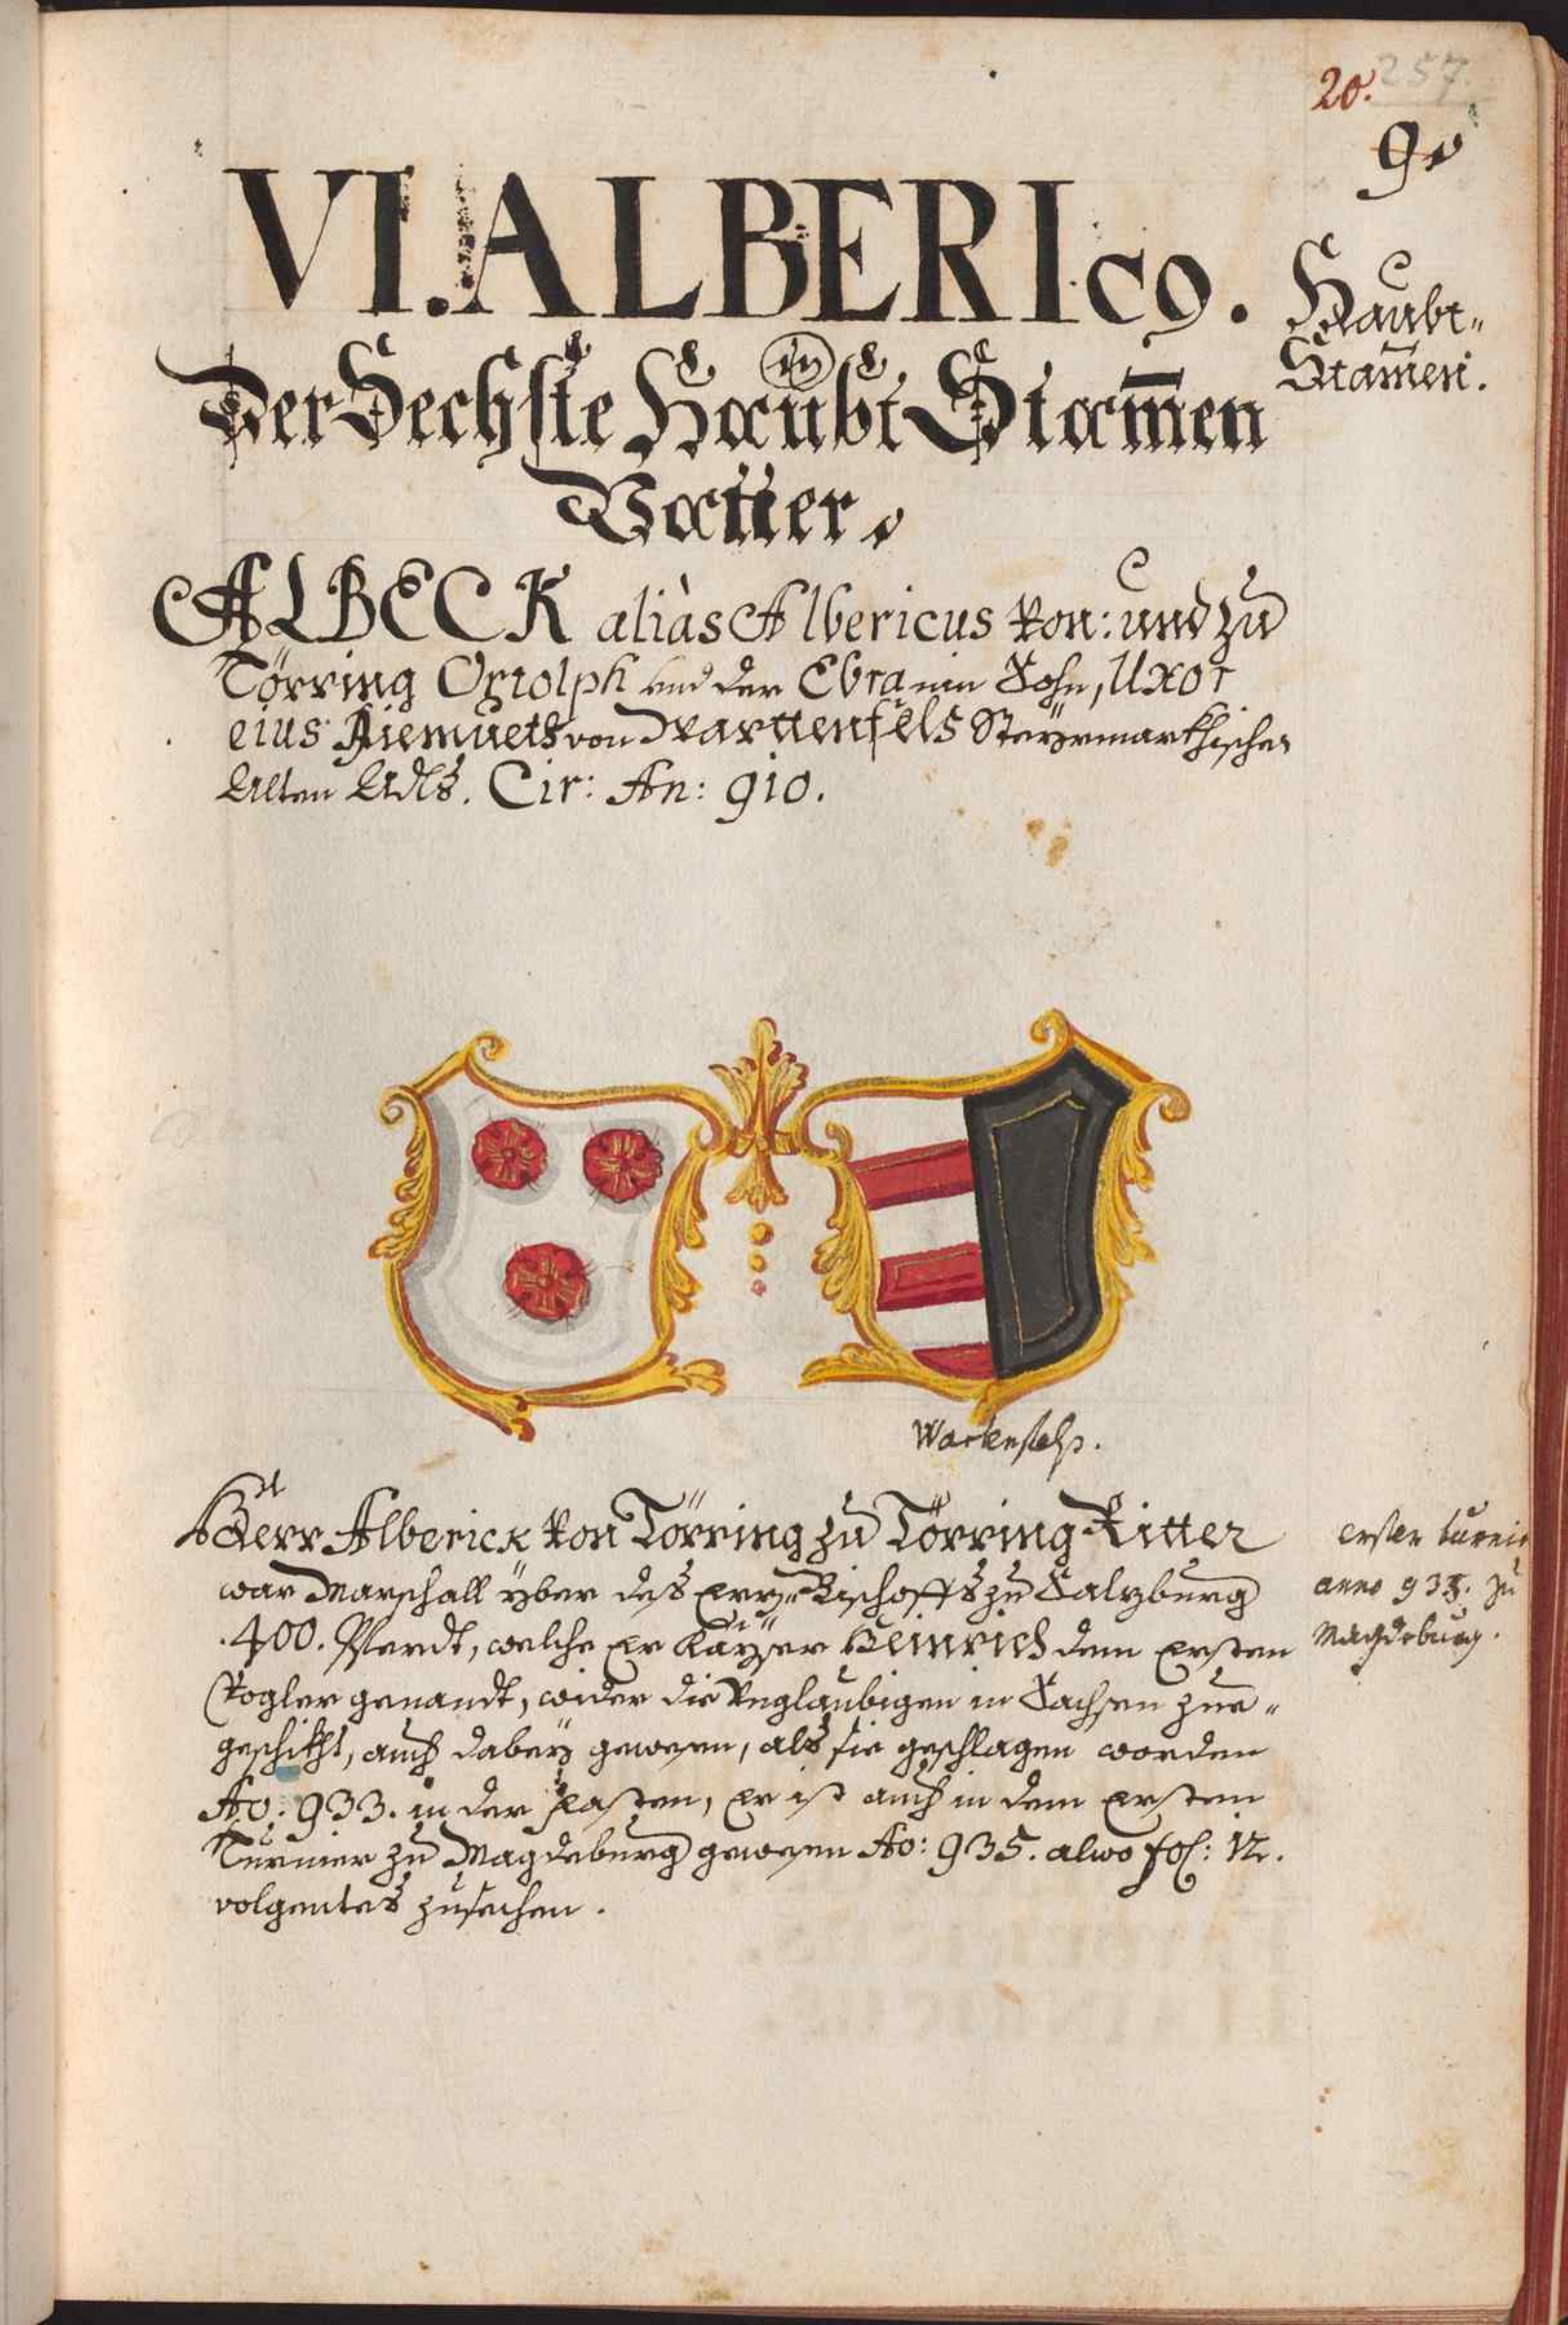 20. 257.
9
VI. ALBERIc9.
Haubt-
Stam̄en.
Der Sechste Haubt Stam̄en
Vatter.
ALBECK aliàs Albericus von: und zu
Törring Ortolph und der Ebra ein Sohn, Uxor
eius Diemueth von Warttenfels Steyrmarkhischen
Alten Adls. Cir: An: 910.
Wartenfelss.
Herr Alberick von Törring zu Törring Ritter
war Marschall yber des Erz-Bischoffs zu Salzburg
.400. Pferdt, welche Er Kayser Heinrich dem Ersten
Vogler genandt, wider die Unglaubigen in Sachsen zue-
geschikht, auch dabey gewesen, als sie geschlagen worden
Ao: 933. in der Fasten, Er ist auch in dem Ersten
Turnier zu Magdeburg gewesen Ao: 935. alwo fol: 12.
volgentes zusechen.
erster turnir
anno 935. zu
Magdeburg.